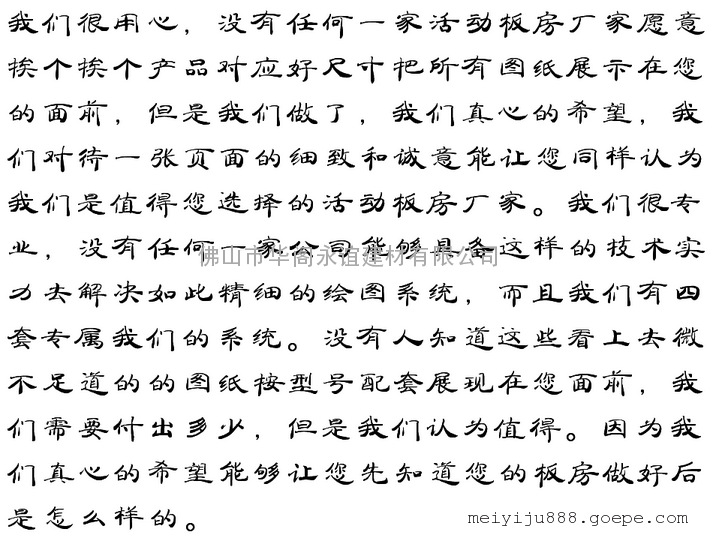 我们很用心，没有任何一家活动板房厂家愿意
挨个挨个产品对应好尺寸把所有图纸展示在您
的面前，但是我们做了，我们真心的希望，我
们对待一张页面的细致和诚意能让您同样认为
我们是值得您选择的活动板房厂家。我们很专
业，没有任何一家公司能够具备这样的技术实
佛山市华阁永谊建材有限公司
力去解决如此精细的绘图系统，而且我们有四
套专属我们的系统。没有人知道这些看上去微
不足道的的图纸按型号配套展现在您面前，我
们需要付出多少，但是我们认为值得。因为我
们真心的希望能够让您先知道您的板房做好后
是怎么样的。
meiyiju888.goepe.com